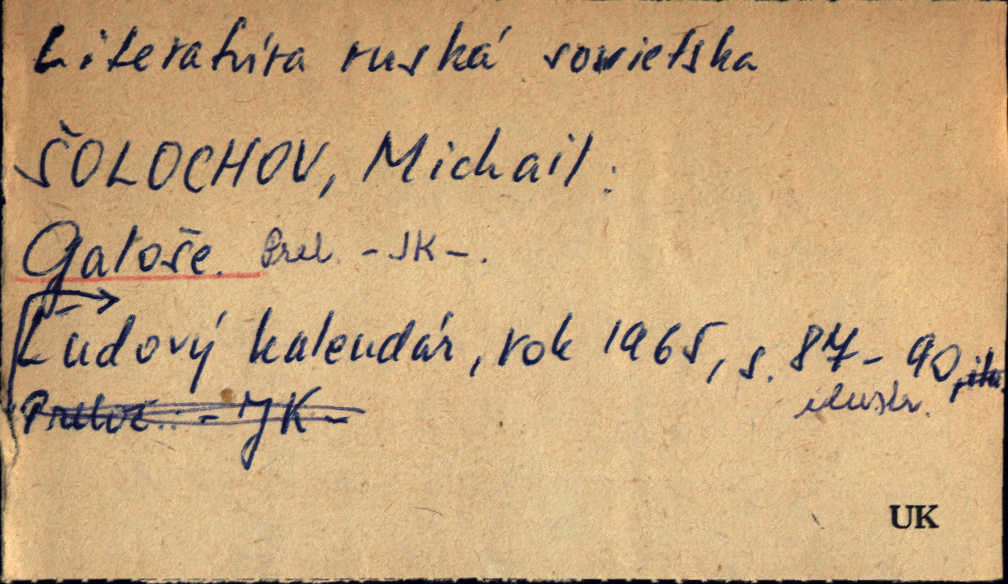 Literatúra ruská sowietska
ŠOLOCHOV, Michail:
Galoše. Prel. -JK-.
Ľudový kalendár, rok 1965, s. 87-90,
ilustr.
Prelož. -JK-
UK